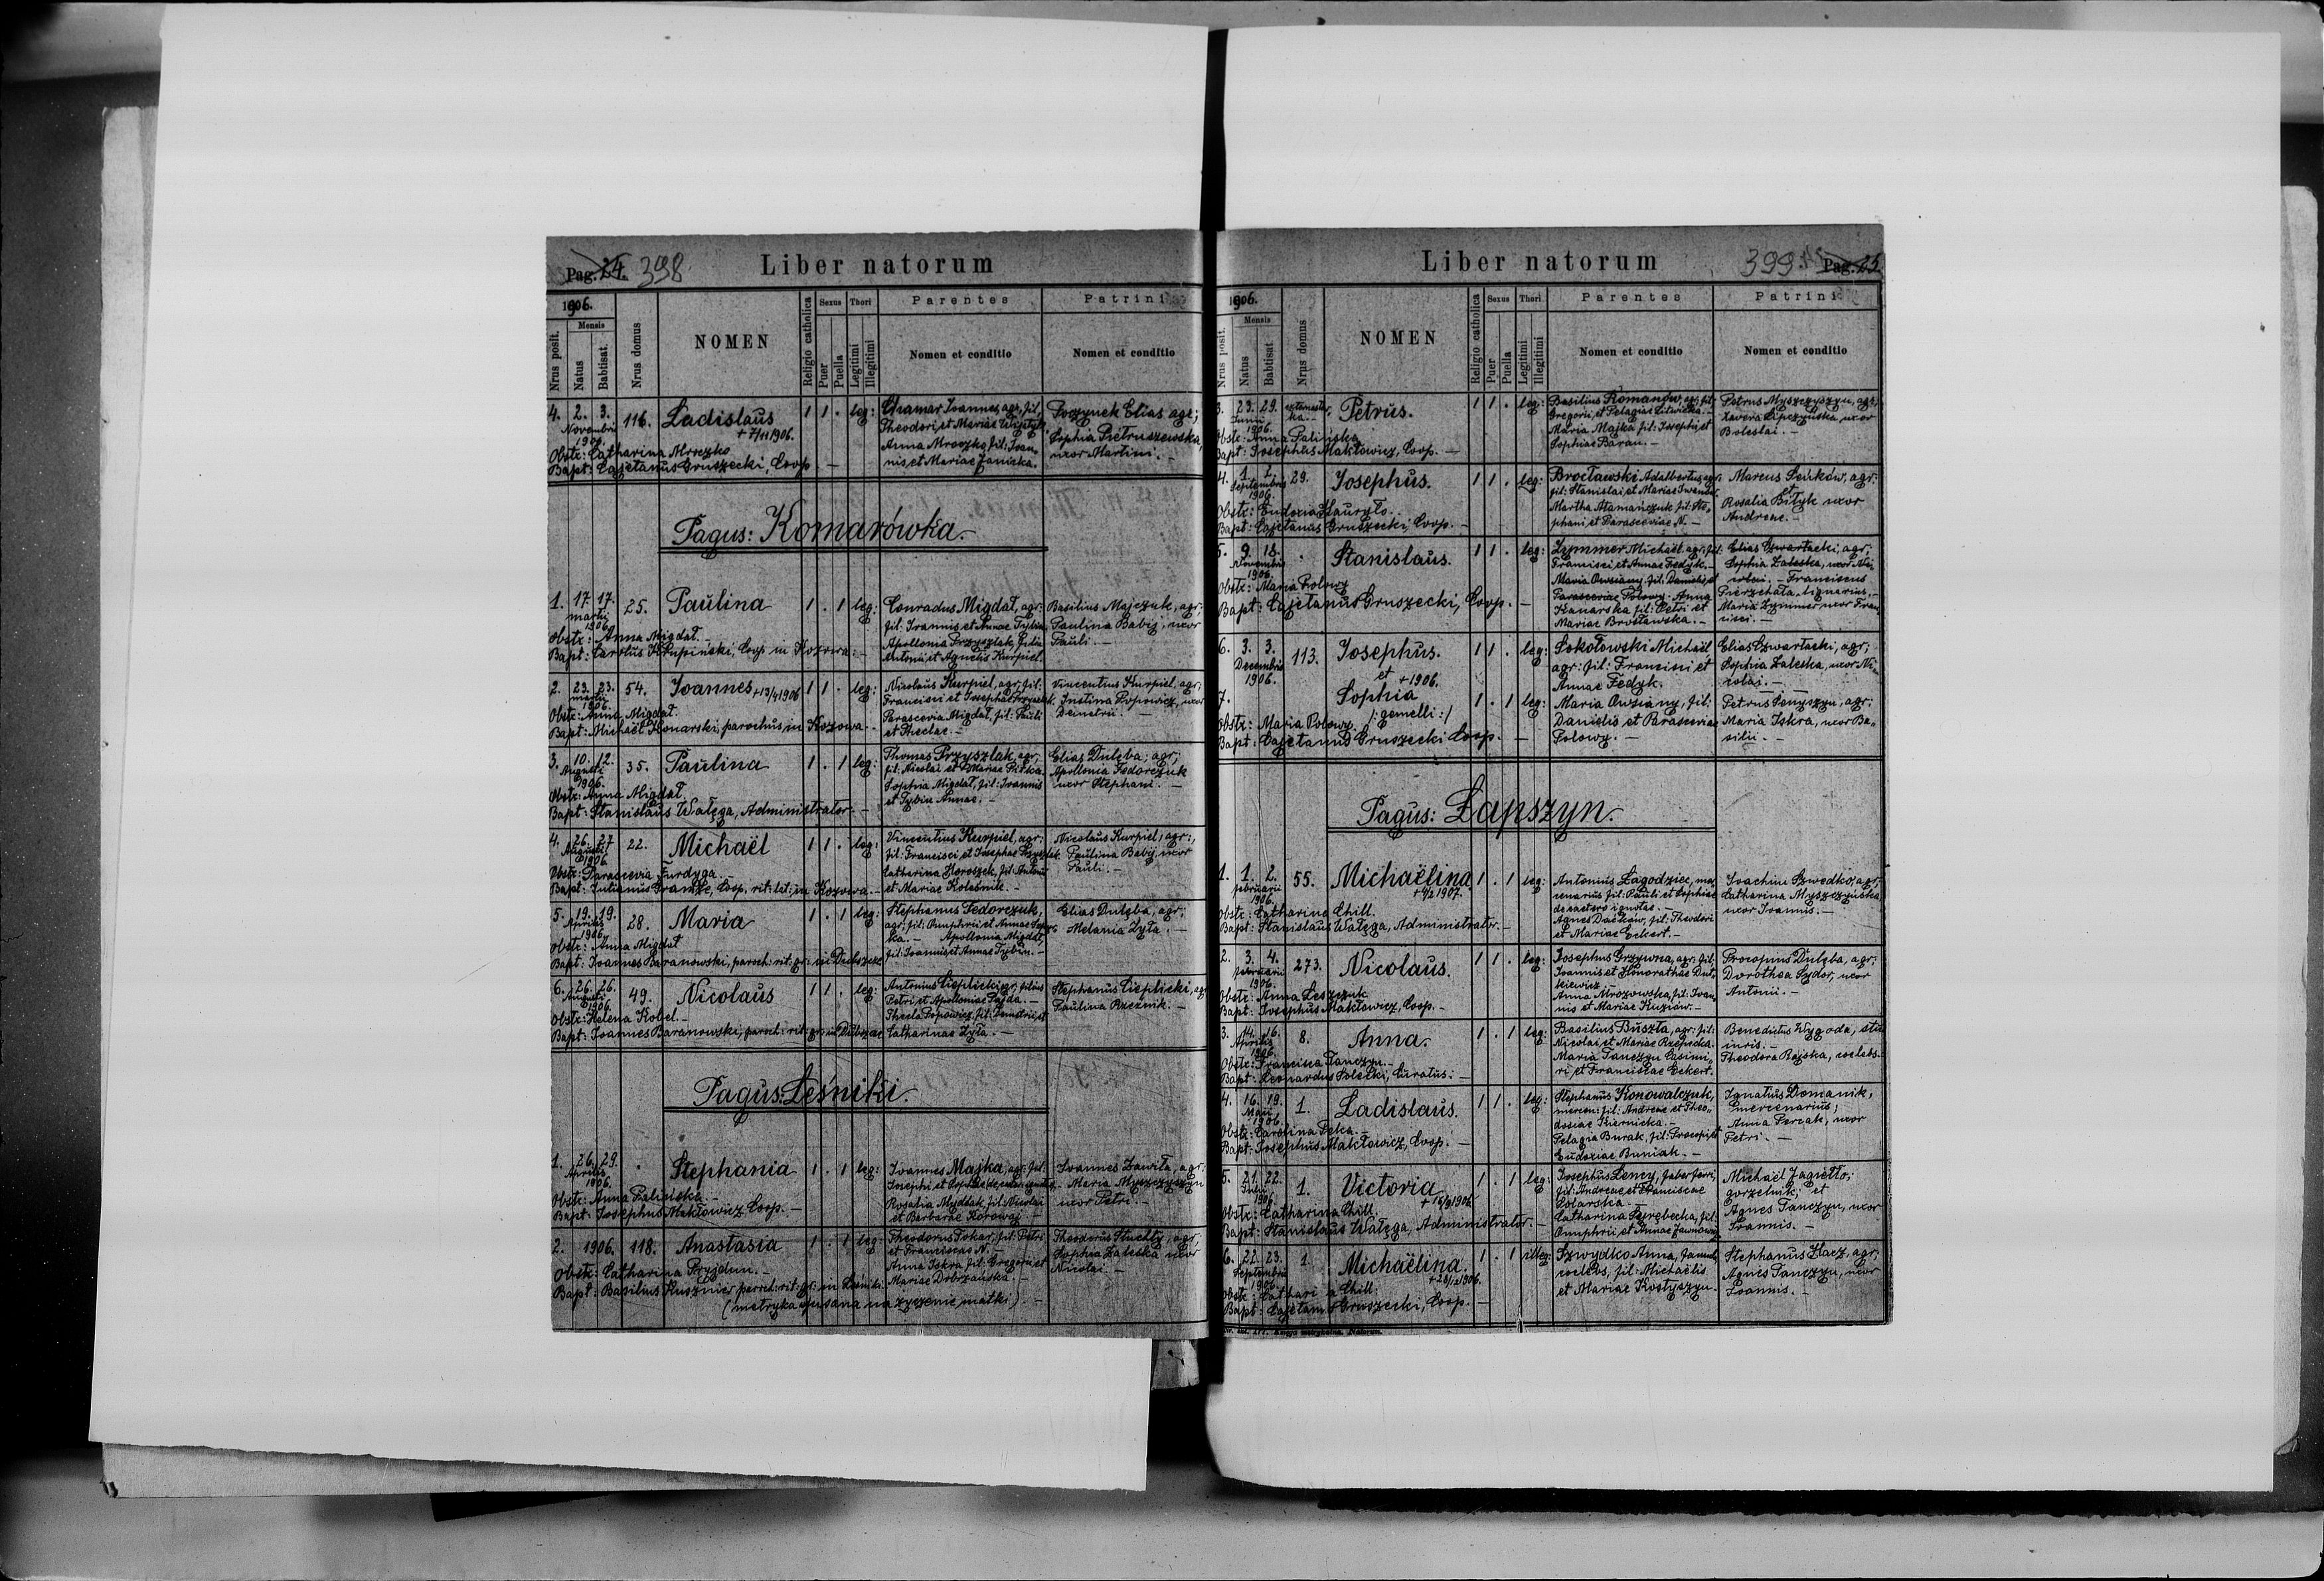 Pag. 24. 398.
Liber natorum
1906.
Nrus posit.
Mensis
Natus
Babtisat.
Nrus domus
NOMEN
Religio catholica
Sexus
Puer
Puella
Thori
Legitimi
Illegitimi
Parentes
Nomen et conditio
Patrini
Nomen et conditio
4. 2. 3. Novembris 1906. 116. Ladislaus + 7/11 1906. 1 1 . leg:
Obstr: Catharina Mroczko
Bapt: Cajetanus Gruszecki, Coop. –
Ioannes, agr. fil.
Theodori et Mariae
Anna Mroczko fil: Ioan-
nis et Mariae Janicka.
Poczynek Elias agr;
Sophia Pietruszewska,
uxor Martini. –
Pagus: Komarówka. –
1. 17. 17. martii 1906. 25. Paulina 1 . 1 leg:
Obstr: Anna Migdał. –
Bapt: Carolus Krupiński, Coop in Kozowa. –
Conradus Migdał, agr:
fil. Ioannis et Annae Tybin
Apollonia Przyszlak, filia
Antonii et Agnetis Kurpiel.
Basilius Majczuk, agr:
Paulina Babij, uxor
Pauli. –
2. 23. 23. martii 1906. 54. Ioannes + 13/4 1906 1 1 . leg:
Obstr: Anna Migdał.
Bapt: Michaël Konarski, parochus in Kozowa. –
Nicolaus Kurpiel, agr, fil:
Francisci et Josephae Przyszlak.
Parascevia Migdał, fil: Pauli
et Theclae. –
Vincentius Kurpiel, agr;
Justina Popowicz, uxor
Demetrii. –
3. 10. 12. Augusti 1906. 35. Paulina 1 . 1 leg:
Obstr: Anna Migdał.
Bapt: Stanislaus Wałęga, Administrator. –
Thomas Przyszlak, agr;
fil: Nicolai et Mariae Pitka.
Sophia Migdał, fil: Ioannis
et Tybin Annae. –
Elias Dulęba; agr;
Apollonia Fedorczuk
uxor Stephani. –
4. 26. 27 Augusti 1906. 22. Michaël 1 1 . leg:
Obstr: Parascevia Furdyga. –
Bapt: Iulianus Gramże, Coop. rit: lat: in Kozowa. –
Vincentius Kurpiel, agr;
fil: Francisci et Josephae Przyszlak.
Catharina Horoszek, fil: Antonii
et Mariae Kolesnik. –
Nicolaus Kurpiel, agr:,
Paulina Babij, uxor
Pauli. –
5. 19. 19. Aprilis 1906. 28. Maria 1 . 1 leg:
Obstr: Anna Migdał
Bapt: Ioannes Baranowski, paroch: rit: gr: in Dubszcze
Stephanus Fedorczuk,
agr: fil: Onuphrii et Annae
ka. – Apollonia Migdał,
fil: Ioannis et Annae Tybin. –
Elias Dulęba, agr;
Melania Zyła. –
6. 26. 26. Augusti 1906. 49. Nicolaus 1 1 . leg:
Obstr: Helena Kobel. –
Bapt: Ioannes Baranowski, paroch: rit: gr: in Dubszcze
Antonius Cieplicki, agr, filius
Petri et Apolloniae Pajda. –
Thecla Popowicz, fil: Demetrii et
Catharinae Zyła. –
Stephanus Cieplicki, agr
Paulina Rzeźnik. –
Pagus: Leśniki.
1. 26. 29. Aprilis 1906. . Stephania 1 . 1 leg:
Obstr: Anna Palińska. –
Bapt: Josephus Makłowicz Coop. –
Ioannes Majka, agr. fil.
Josephi et Sophiae de caetero ignotae. –
Rosalia Mydlak, fil: Nicolai
et Barbarae Korowaj –
Ioannes Zawiła, agr:
Maria Myszczyszyn
uxor Petri. –
2. 1906. 118. Anastasia 1 . 1 leg:
Obstr: Catharina Pryjdun. –
Bapt: Basilius Kusznier paroch: rit: gr: in Leśniki.
(metryka spisana na życzenie matki). –
Theodorus Tokar, fil: Petri
et Franciscae N. –
Anna Iskra fil: Gregorii et
Mariae Dobrzańska. –
Theodorus Stuchły, agr,
Sophia Zaleska uxor
Nicolai –
Liber natorum
399. Pag. 25.
1906.
Nrus posit.
Mensis
Natus
Babtisat
Nrus domus
NOMEN
Religio catholica
Sexus
Puer
Puella
Thori
Legitimi
Illegitimi
Parentes
Nomen et conditio
Patrini
Nomen et conditio
3. 23. 29. Junii 1906. Petrus. 1 1 . leg:
Obstr: Anna Palińska
Bapt: Josephus Makłowicz, Coop. –
Basilius Romanów, agr, fil:
Gregorii, et Pelagiae Litwicka. –
Maria Majka fil: Josephi et
Sophiae Baran. –
Petrus Myszczyszyn, agr;
Xavera Lipczyńska, uxor
Boleslai. –
4. 1. 2. Septembris 1906. 29. Josephus. 1 1 . leg:
Obstr: Eudoxia Hauryło.
Bapt: Cajetanus Gruszecki, Coop. –
Brocławski Adalbertus agr:
fil: Stanislai et Mariae
Martha Atamańczuk fil: Ste-
phani et Parasceviae N. –
Marcus Seńków, agr:
et
Rosalia Biłyk uxor
Andreae. –
5. 9. 18. Novembris 1906. . Stanislaus. 1 1 . leg:
Obstr: Maria Polowy
Bapt: Cajetanus Gruszecki, Coop. –
Zymmer Michaël. agr; fil:
Francisci et Annae Fedyk. –
Maria Owsiany, fil: Danielis et
Parasceviae Polowy. Anna
Kanarska fil: Petri et
Mariae Brocławska. –
Elias Czwartacki, agr;
Sophia Zaleska, uxor Ni-
colai. – Franciscus
Pierzchała, lignarius, –
Maria Zymmer uxor Fran-
cisci. –
6. 3. 3. Decembris 1906. 113. Josephus. 1 1 . leg:
et + 1906.
7. Sophia 1 . 1 leg:
/: gemelli :/
Obstr: Maria Polowy
Bapt: Cajetanus Gruszecki Coop. –
Sokołowski Michaël
agr: fil: Francisci et
Annae Fedyk.
Maria Owsiany, fil:
Danielis et Parasceviae
Polowy. –
Elias Czwartacki, agr;
Sophia Zaleska, uxor Ni-
colai. –
Petrus Senyszyn, agr:
Maria Iskra, uxor Ba-
silii. –
Pagus: Łapszyn.
1. 1. 2. februarii 1906. 55. Michaëlina 1 . 1 leg:
Obstr: Catharina Chill.
Bapt: Stanislaus Wałęga, Administrator. –
Antonius Łagodziec, me-
cenarius fil: Pauli et Sophiae
de caetero ignotae. –
Agnes Daćków, fil: Theodori
et Mariae Eckert. –
Ioachim Szwedko, agr,
Catharina Myszczyńska
uxor Ioannis. –
2. 3. 4. februarii 1906. 273. Nicolaus. 1 1 . leg:
Obstr: Anna Leszczuk
Bapt: Josephus Makłowicz, Coop. –
Josephus Grzywna, agr: fil:
Ioannis et Honorathae Dut-
kiewicz. –
Anna Mrozowska, fil: Ioan-
nis et Mariae Kuziów. –
Procopius Dulęba, agr;
Dorothea Sydor, uxor
Antonii. –
3. 14. 16. Aprilis 1906. 8. Anna. 1 . 1 leg:
Obstr: Francisca Tanczyn. –
Bapt: Leonardus Solecki, Curatus. –
Basilius Buszta, agr: fil:
Nicolai et Mariae Rzepicka.
Maria Tanczyn Casimi-
ri, et Franciscae Eckert.
Benedictus Wygoda, stu
iuris. –
Theodora Rajska, coelebs.
4. 16. 19. Maii 1906. 1. Ladislaus. 1 1 . leg:
Obstr: Carolina Peka. –
Bapt: Josephus Makłowicz, Coop. –
Stephanus Konowalczuk,
mercen: fil: Andreae et Theo-
dosiae Kiernicka. –
Pelagia Burak, fil: Procopii et
Eudoxiae Buniak. –
Ignatius Domanik,
mercenarius;
Anna Percak, uxor
Petri. –
5. 21. 22. Julii 1906. 1. Victoria + 16/9 1906 1 . 1 leg:
Obstr: Catharina Chill.
Bapt: Stanislaus Wałęga, Administrator. –
Josephus Lency, faber ferri,
fil: Andreae et Franciscae
Kolarska. –
Catharina
Onuphrii et Annae
Michaël Jagiełło;
gorzelnik; et
Agnes Tanczyn, uxor
Ioannis. –
6. 22. 23. Septembris 1906. 1. Michaëlina. 1 . 1 illeg:
Obstr: Catharina Chill.
Bapt: Cajetanus Gruszecki, Coop. –
Szwydko Anna, famula
coelebs, fil: Michaëlis
et Mariae Kostyszyn.
Stephanus Kacz, agr;
Agnes Tanczyn, uxor
Ioannis. –